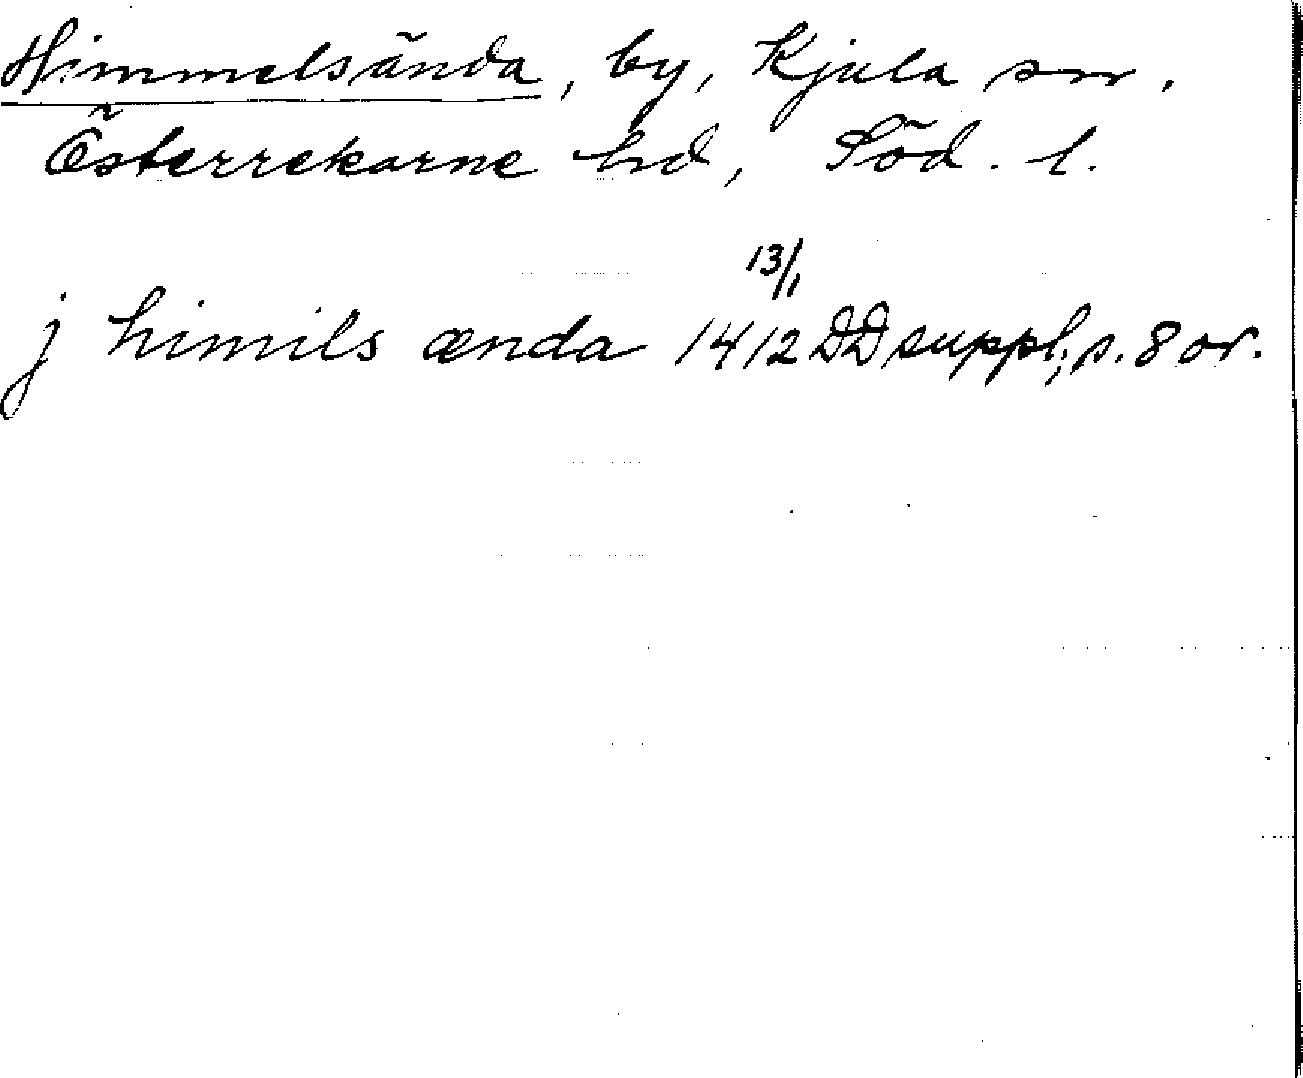 Himmelsända, by, Kjula sn.
Österrekarne hd, Söd. l.
j himils ænda 13/1 1412 DD suppl, s. 8 or.